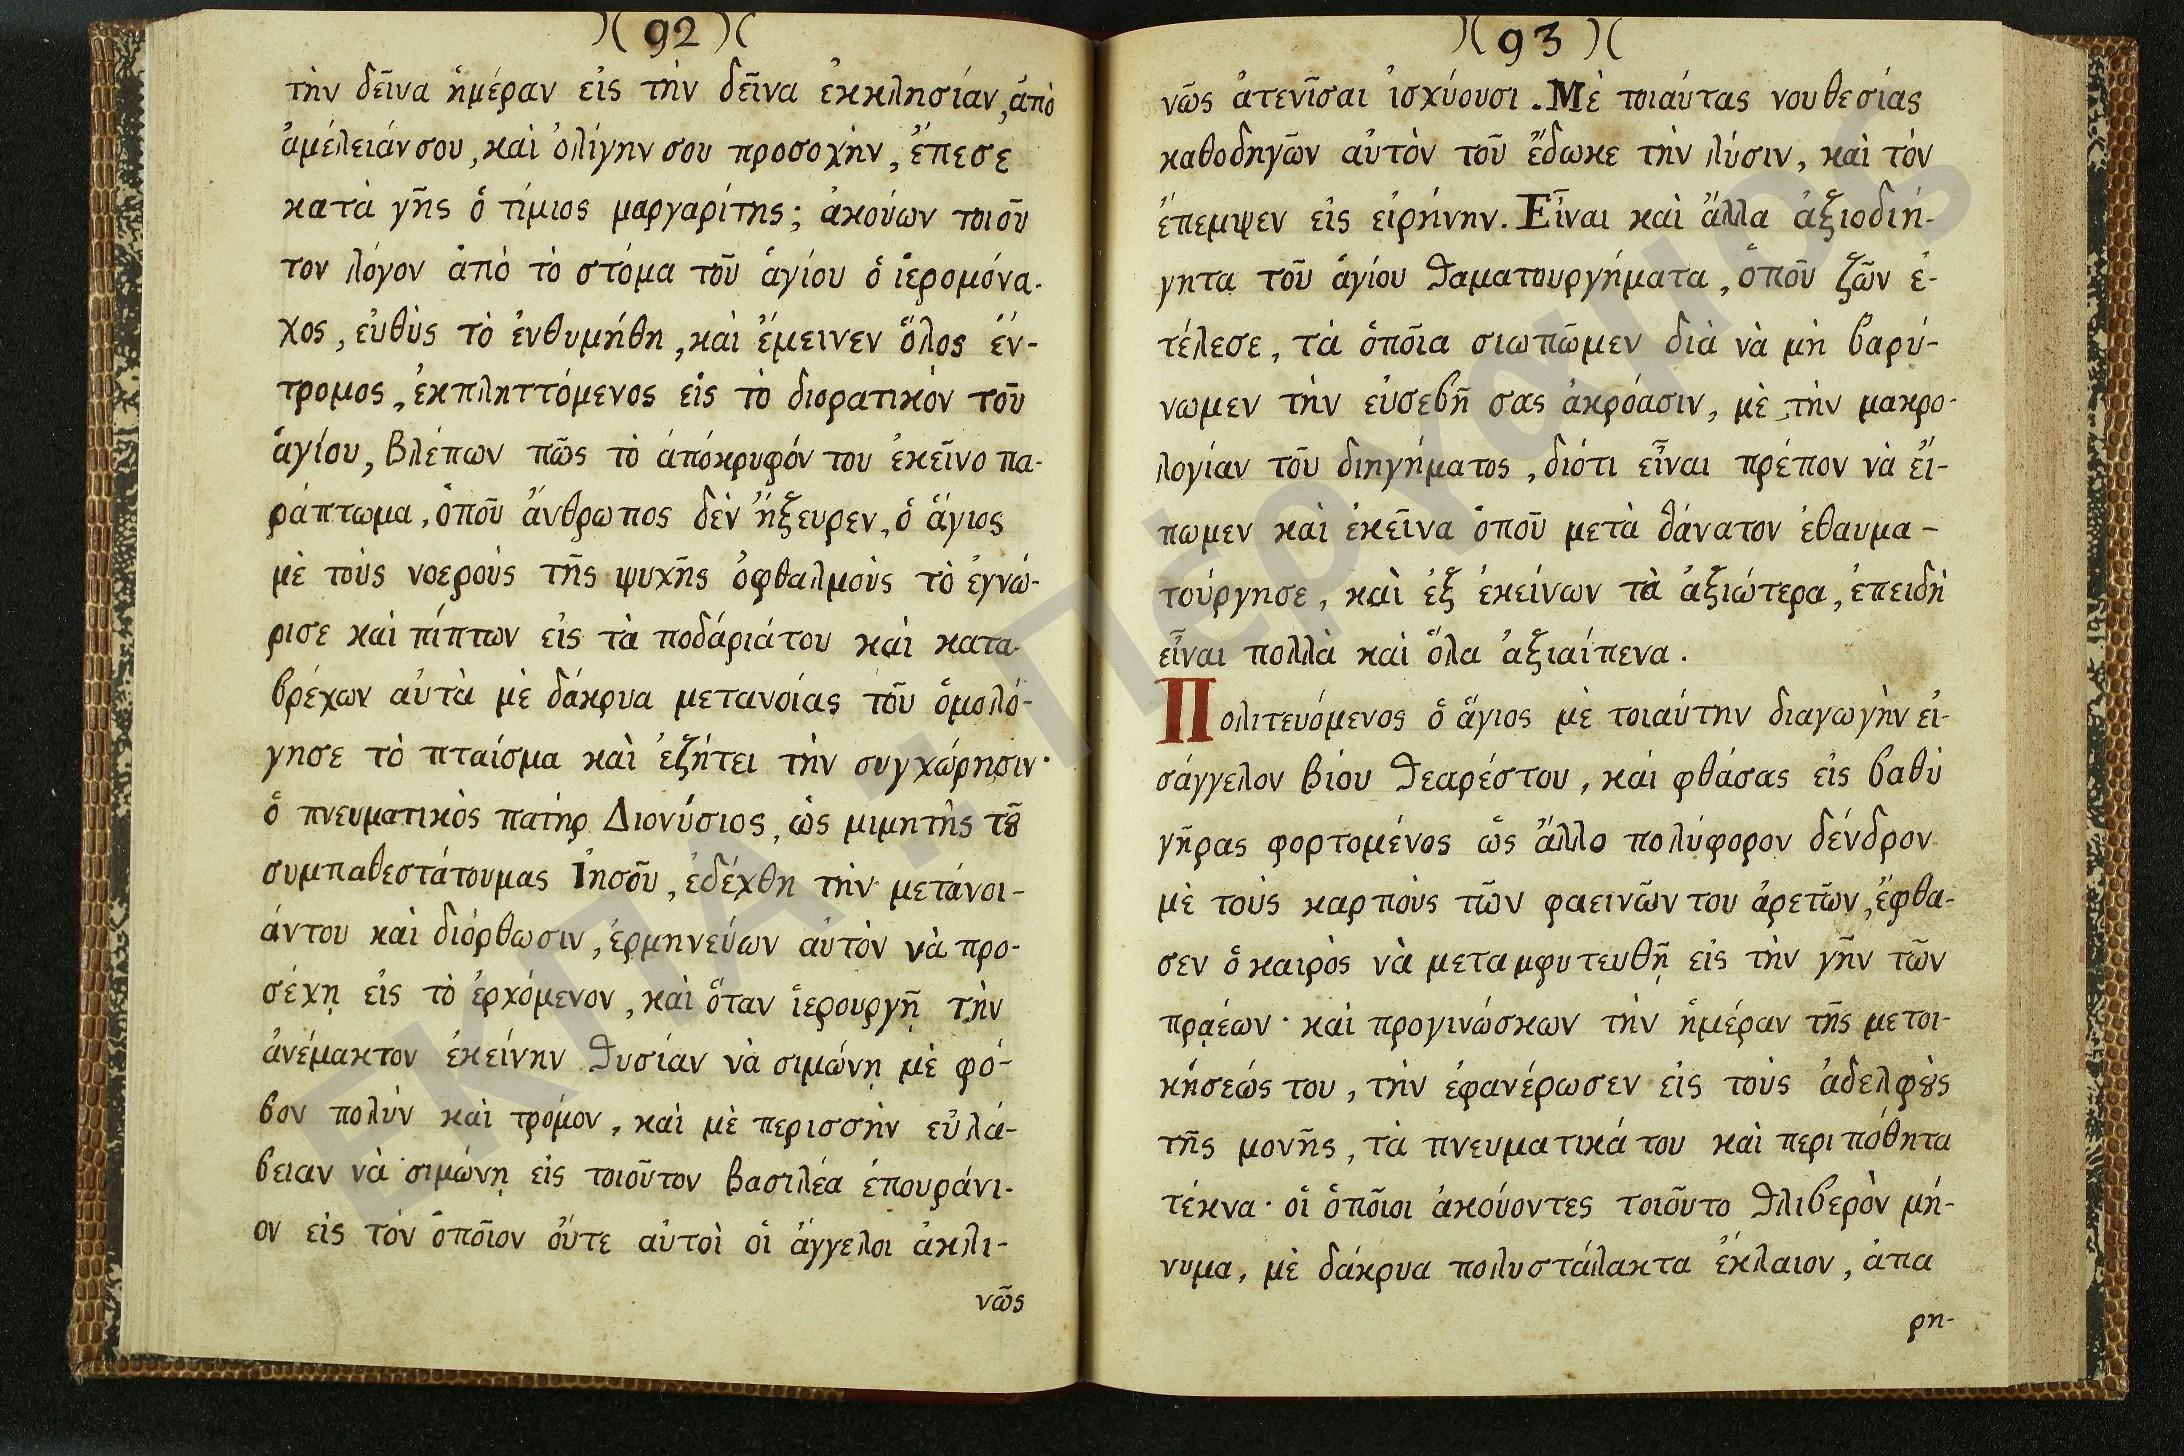 )( 92 )(
τὴν δεῖνα ἡμέραν εἰς τὴν δεῖνα ἐκκλησίαν, ἀπὸ
ἀμέλειάν σου, καὶ ὀλίγην σου προσοχὴν, ἔπεσε
κατὰ γῆς ὁ τίμιος μαργαρίτης; ἀκούων τοιοῦ
τον λόγον ἀπὸ τὸ στόμα τοῦ ἁγίου ὁ ἱερομόνα-
χος, εὐθὺς τὸ ἐνθυμήθη, καὶ ἔμεινεν ὅλος ἔν-
τρομος, ἐκπληττόμενος εἰς τὸ διορατικὸν τοῦ
ἁγίου, βλέπων πῶς τὸ ἀπόκρυφόν του ἐκεῖνο πα-
ράπτωμα, ὁποῦ ἄνθρωπος δὲν ἤξευρεν, ὁ ἅγιος
μὲ τοὺς νοεροὺς τῆς ψυχῆς ὀφθαλμοὺς τὸ ἐγνώ-
ρισε καὶ πίπτων εἰς τὰ ποδάριάτου καὶ κατα-
βρέχων αὐτὰ μὲ δάκρυα μετανοίας τοῦ ὁμολό-
γησε τὸ πταίσμα καὶ ἐζήτει τὴν συγχώρησιν·
ὁ πνευματικὸς πατὴρ Διονύσιος, ὡς μιμητὴς τȣ͂
συμπαθεστάτουμας Ἰησοῦ, ἐδέχθη τὴν μετάνοι-
άντου καὶ διόρθωσιν, ἑρμηνεύων αὐτὸν νὰ προ-
σέχῃ εἰς τὸ ἐρχόμενον, καὶ ὅταν ἱερουργῇ τὴν
ἀνέμακτον ἐκείνην θυσίαν νὰ σιμώνῃ μὲ φό-
βον πολὺν καὶ τρόμον, καὶ μὲ περισσὴν εὐλά-
βειαν νὰ σιμώνῃ εἰς τοιοῦτον βασιλέα ἐπουράνι-
ον εἰς τὸν ὁποῖον οὔτε αὐτοὶ οἱ ἄγγελοι ἀκλι-
νῶς
)( 93 )(
νῶς ἀτενῖσαι ἰσχύουσι. Μὲ τοιαύτας νουθεσίας
καθοδηγῶν αὐτὸν τοῦ ἔδωκε τὴν λύσιν, καὶ τὸν
ἔπεμψεν εἰς εἰρήνην. Εἶναι καὶ ἄλλα ἀξιοδιή-
γητα τοῦ ἁγίου θαματουργήματα, ὁποῦ ζῶν ἐ-
τέλεσε, τὰ ὁποῖα σιωπῶμεν διὰ νὰ μὴ βαρύ-
νωμεν τὴν εὐσεβῆ σας ἀκρόασιν, μὲ τὴν μακρο-
λογίαν τοῦ διηγήματος, διότι εἶναι πρέπον νὰ εἴ-
πωμεν καὶ ἐκεῖνα ὁποῦ μετὰ θάνατον ἐθαυμα-
τούργησε, καὶ ἐξ ἐκείνων τὰ ἀξιώτερα, ἐπειδὴ
εἶναι πολλὰ καὶ ὅλα ἀξιαίπενα.
Πολιτευόμενος ὁ ἅγιος μὲ τοιαύτην διαγωγὴν εἰ-
σάγγελον βίου θεαρέστου, καὶ φθάσας εἰς βαθὺ
γῆρας φορτομένος ὡς ἄλλο πολύφορον δένδρον
μὲ τοὺς καρποὺς τῶν φαεινῶν του ἀρετῶν, ἔφθα-
σεν ὁ καιρὸς νὰ μεταμφυτευθῇ εἰς τὴν γῆν τῶν
πραέων· καὶ προγινώσκων τὴν ἡμέραν τῆς μετοι-
κήσεώς του, τὴν ἐφανέρωσεν εἰς τοὺς ἀδελφȣ̀ς
τῆς μονῆς, τὰ πνευματικά του καὶ περιπόθητα
τέκνα· οἱ ὁποῖοι ἀκούοντες τοιοῦτο θλιβερὸν μή-
νυμα, μὲ δάκρυα πολυστάλακτα ἔκλαιον, ἀπα
ρη-
ΕΚΠΑ : Πέργαμος